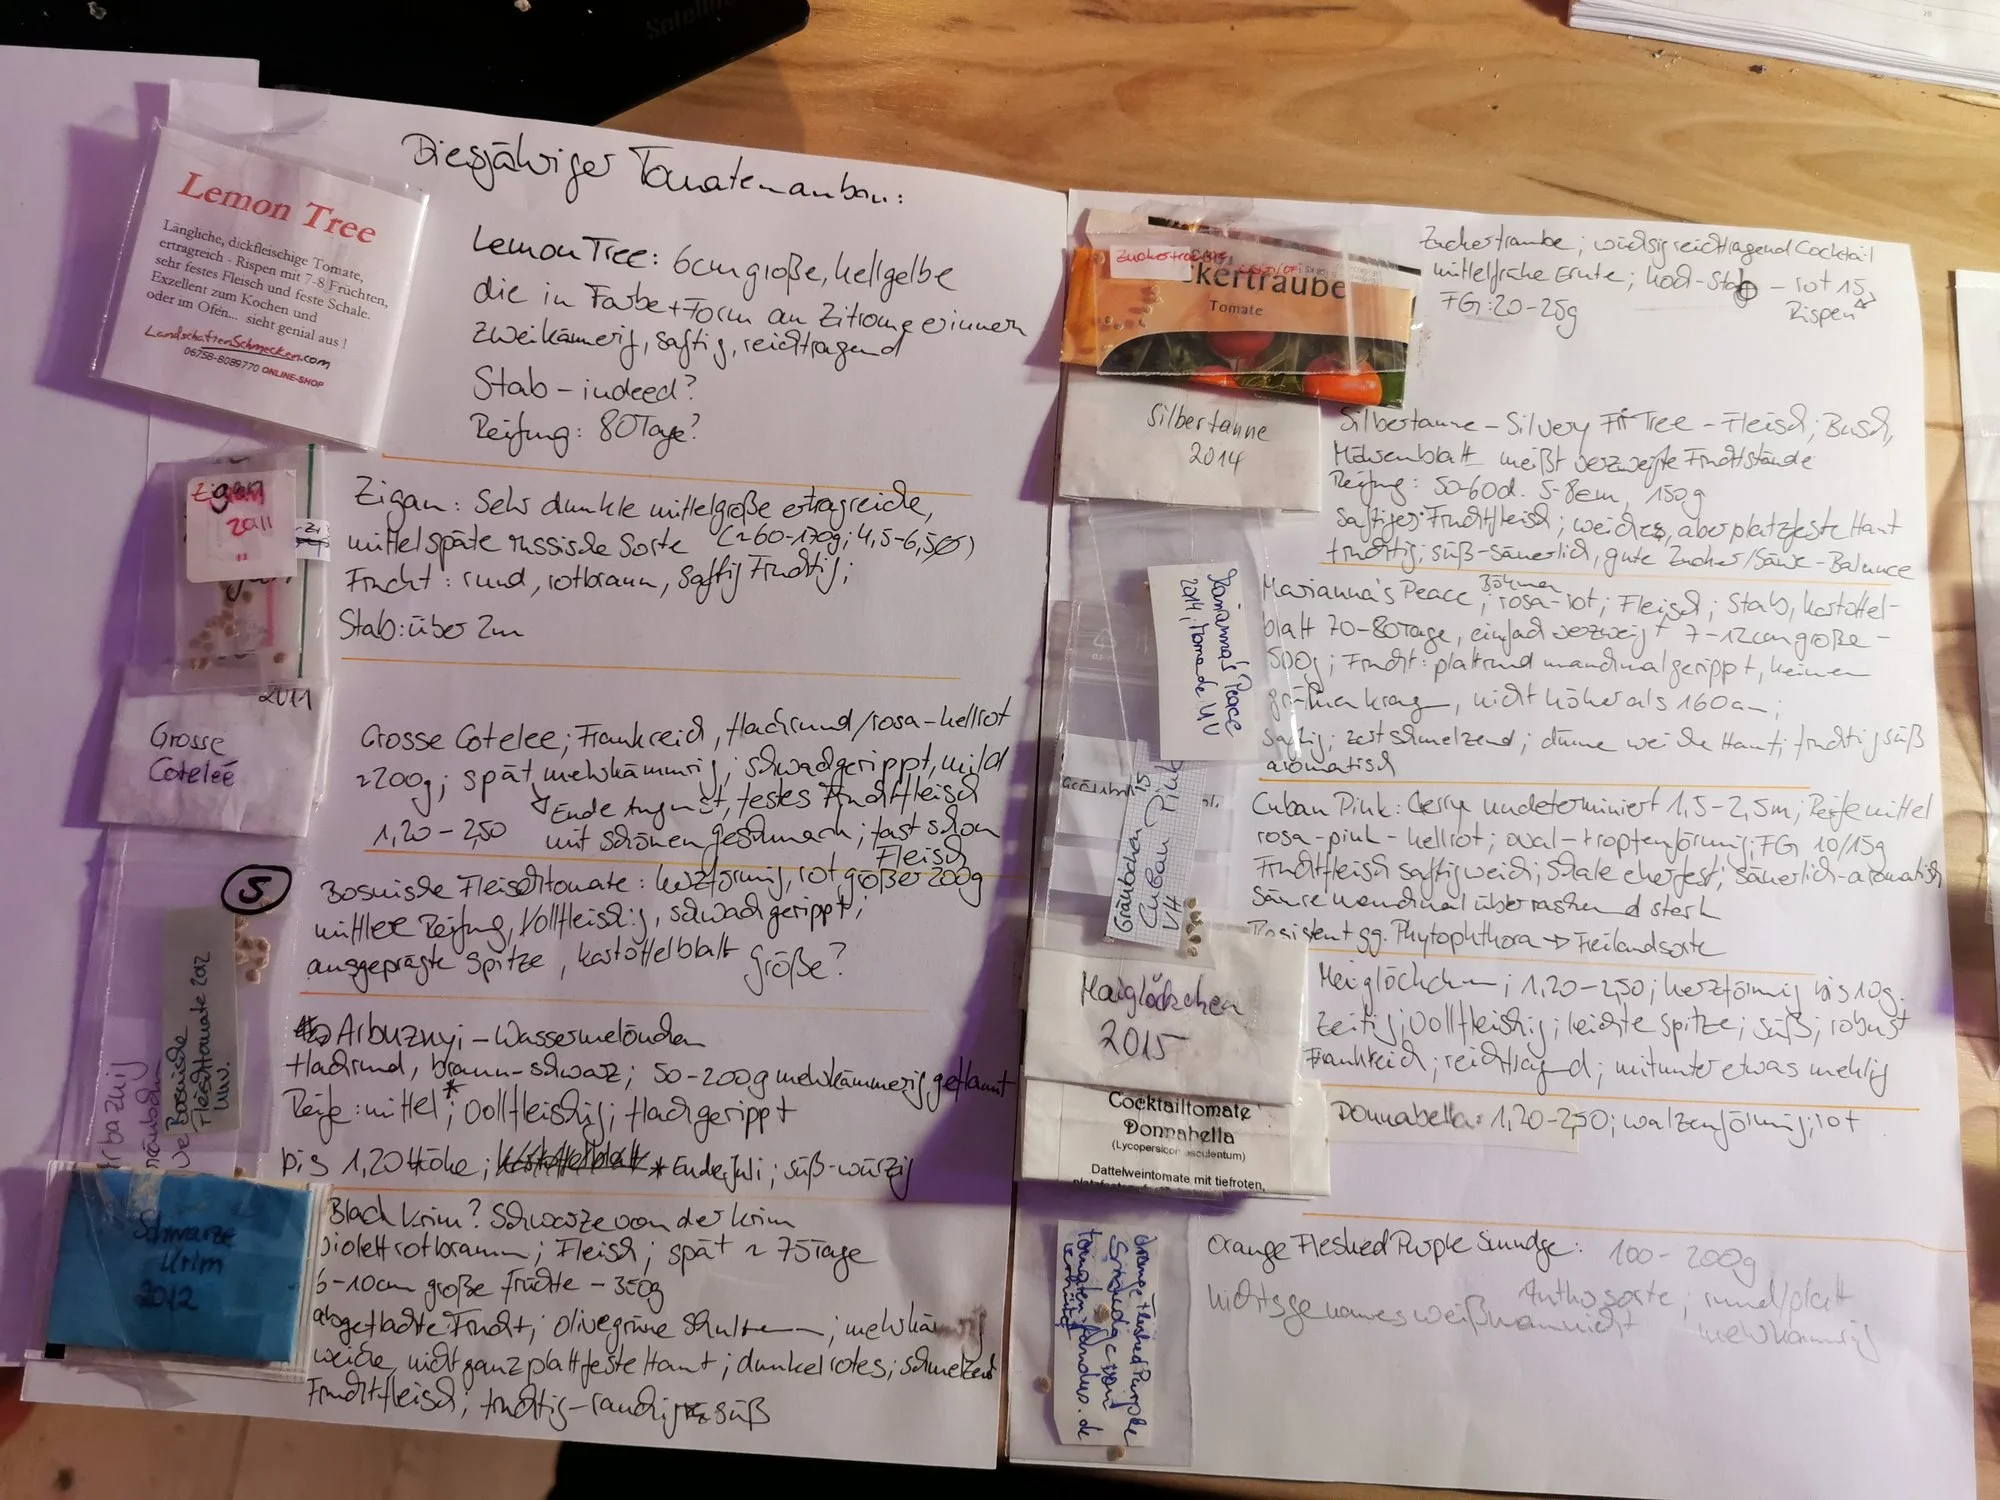 Diesjähriger Tomatenanbau:
Lemon Tree
Längliche, dickfleischige Tomate,
ertragreich - Rispen mit 7-8 Früchten,
sehr festes Fleisch und feste Schale.
Exzellent zum Kochen und
oder im Ofen... sieht genial aus !
LandschaftenSchmecken.com
06758-8089770 ONLINE-SHOP
Lemon Tree: 6cm große, hellgelbe
die in Farbe+Form an Zitrone erinnern
zweikämmrig, saftig, reichtragend
Stab – indeed?
Reifung: 80 Tage?
Zigan
2011
Zigan: Sehr dunkle mittelgroße ertragreiche,
mittelspäte russische Sorte (~60-170g; 4,5-6,5Ø)
Frucht: rund, rotbraun, saftig fruchtig;
Stab: über 2m
2011
Grosse
Cotelée
Grosse Cotelee; Frankreich, flachrund/rosa-hellrot
~200g; spät, mehrkämmrig, schwachgerippt, mild
Ende August, festes Fruchtfleisch
1,20-2,50 mit schönen geschmack; fast schon
Fleisch
5
Bosnische Fleischtomate: herzförmig, rot, größer 200g
mittlere Reifung, Vollfleischig, schwach gerippt;
ausgeprägte Spitze, kartoffelblatt Größe?
Bosnische
Fleischtomate 2012
Arbuznyi – Wassermelönchen
flachrund, braun-schwarz; 50-200g mehrkämmerig geflammt
Reife: mittel*; Vollfleischig; flachgerippt
bis 1,20 Höhe; Kartoffelblatt * Ende Juli; süß-würzig
Schwarze
Krim
2012
Black Krim? Schwarze von der Krim
violett rotbraun; Fleisch; spät ~ 75 Tage
6-10cm große Früchte – 350g
abgeflachte Frucht; olivegrüne Schultern; mehrkämrig
weiche, nicht ganz plattfeste Haut; dunkelrotes; schmelzend
Fruchtfleisch; fruchtig-rauchig süß
Zuckertraube
ckertraube
Tomate
Zuckertraube; wüchsig reichtragend Cocktail
mittelfrühe Ernte; hoch-Stab – rot 15
FG: 20-25g Rispen
Silbertanne
2014
Silbertanne – Silvery Fir Tree – Fleisch; Busch,
Möhrenblatt meißt verzweigte Fruchtstände
Reifung: 50-60d. 5-8cm, 150g
saftiges Fruchtfleisch; weiches, aber platzfeste Haut
fruchtig; süß-säuerlich, gute Zucker/Säure-Balance
Marianna's Peace
2014
Marianna's Peace, Böhmen
rosa-rot; Fleisch; Stab, kartoffel-
blatt 70-80 Tage, einfach verzweigt 7-12cm große –
500g; Frucht: plattrund manchmal gerippt, keinen
grünen kragen, nicht höher als 160cm;
saftig; zart schmelzend; dünne weiche Haut; fruchtig süß
aromatisch
Cuban Pink
Cuban Pink: Cherry undeterminiert 1,5-2,5m; Reife mittel
rosa-pink-hellrot; oval-tropfenförmig; FG 10/15g
Fruchtfleisch saftig weich; Schale eher fest; säuerlich-aromatisch
Säure manchmal überraschend stark
Resistent gg. Phytophthora → Freilandsorte
Maiglöckchen
2015
Maiglöckchen; 1,20-2,50; herzförmig bis 10g.
zeitig; Vollfleischig; leichte Spitze; süß; robust
Frankreich; reichtragend; mitunter etwas mehlig
Cocktailtomate
Donnabella
Dattelweintomate mit tiefroten,
Donnabella: 1,20-2,50; walzenförmig; rot
Orange Fleshed Purple
Smudge
Orange Fleshed Purple Smudge: 100-200g
Anthosorte; rund/platt
nichts genaues weiß man nicht mehrkämrig